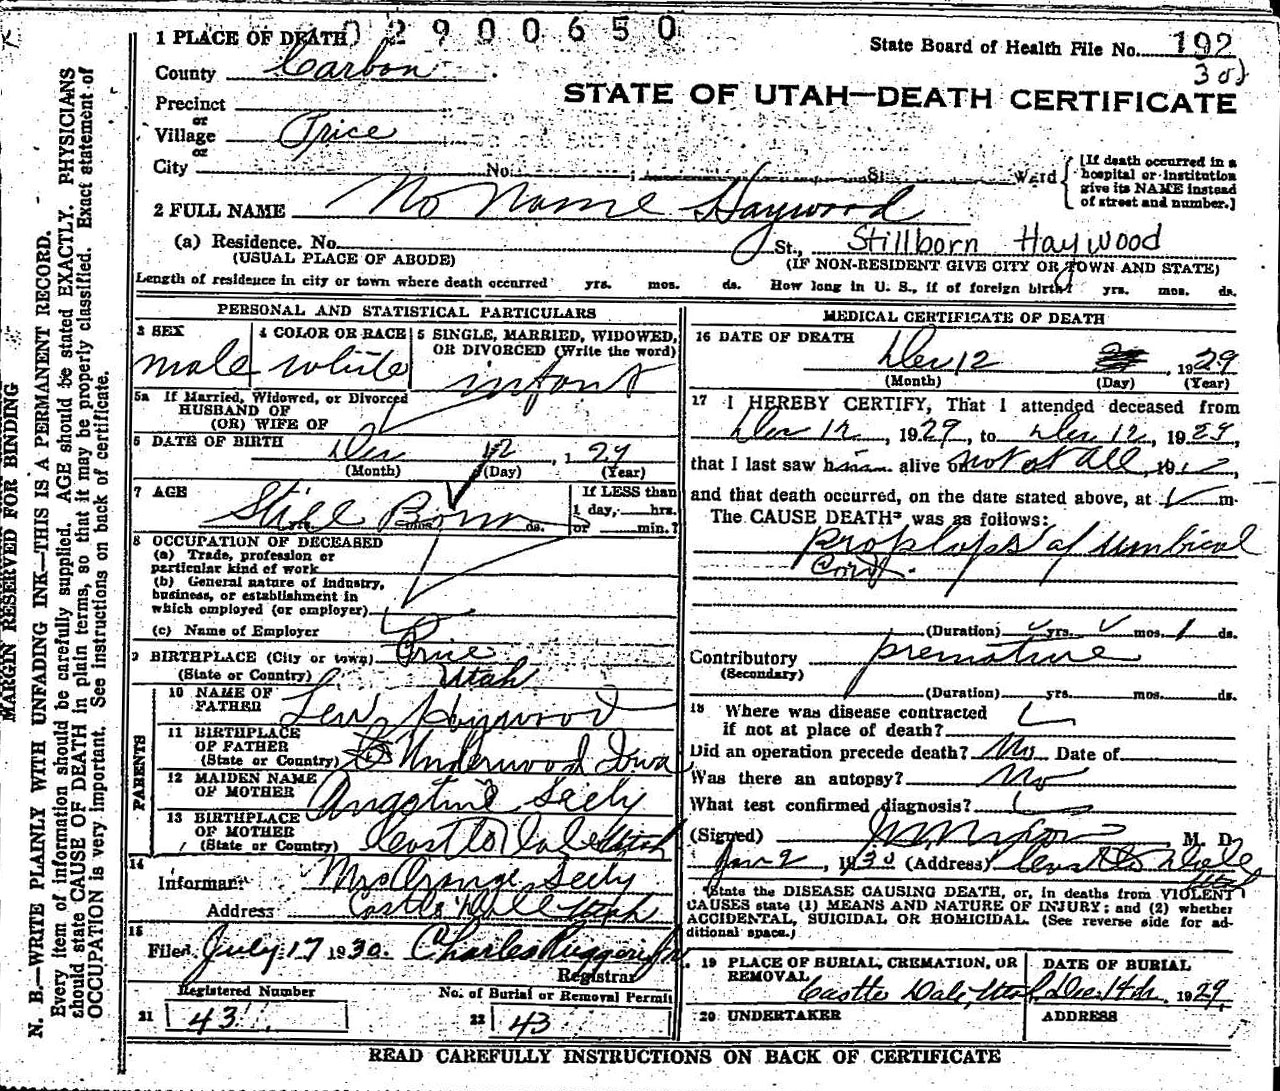 02900650
1 PLACE OF DEATH
State Board of Health File No. 192
305
County Carbon
STATE OF UTAH—DEATH CERTIFICATE
Precinct
or
Village Price
or
City No. ; St. Ward
[If death occurred in a
hospital or institution
give its NAME instead
of street and number.]
2 FULL NAME No Name Haywood
(a) Residence. No. St., Stillborn Haywood
(USUAL PLACE OF ABODE) (IF NON-RESIDENT GIVE CITY OR TOWN AND STATE)
Length of residence in city or town where death occurred yrs. mos. ds. How long in U. S., if of foreign birth? yrs. mos. ds.
PERSONAL AND STATISTICAL PARTICULARS
3 SEX
male
4 COLOR OR RACE
white
5 SINGLE, MARRIED, WIDOWED,
OR DIVORCED (Write the word)
infant
5a If Married, Widowed, or Divorced
HUSBAND OF
(OR) WIFE OF
6 DATE OF BIRTH Dec 12, 1 29
(Month) (Day) (Year)
7 AGE Still Born
yrs. mos. ds.
If LESS than
1 day, hrs.
or min.?
8 OCCUPATION OF DECEASED
(a) Trade, profession or
particular kind of work
(b) General nature of industry,
business, or establishment in
which employed (or employer)
(c) Name of Employer
9 BIRTHPLACE (City or town) Price
(State or Country) Utah
PARENTS
10 NAME OF
FATHER Lew Haywood
11 BIRTHPLACE
OF FATHER
(State or Country) Underwood Iowa
12 MAIDEN NAME
OF MOTHER Seely
13 BIRTHPLACE
OF MOTHER
(State or Country) Castle Dale Utah
14
Informant Mrs Orange Seely
Address Castle Dale Utah
15
Filed July 17 1930. Charles Ruggeri Jr.
Registrar
Registered Number
21 43
No. of Burial or Removal Permit
22 43
MEDICAL CERTIFICATE OF DEATH
16 DATE OF DEATH
Dec 12, 1929
(Month) (Day) (Year)
17 I HEREBY CERTIFY, That I attended deceased from
Dec 12, 1929, to Dec 12, 1929,
that I last saw him alive on not at all, 19
and that death occurred, on the date stated above, at m.
The CAUSE DEATH* was as follows:
Proplaps of Umbical
Cord.
(Duration) yrs. mos. ds.
Contributory premature
(Secondary)
(Duration) yrs. mos. ds.
18 Where was disease contracted
if not at place of death?
Did an operation precede death? No Date of
Was there an autopsy? No
What test confirmed diagnosis?
(Signed) M. D.
Jan 2, 1930 (Address) Castle Dale
Utah
*State the DISEASE CAUSING DEATH, or, in deaths from VIOLENT
CAUSES state (1) MEANS AND NATURE OF INJURY; and (2) whether
ACCIDENTAL, SUICIDAL OR HOMICIDAL. (See reverse side for ad-
ditional space.)
19 PLACE OF BURIAL, CREMATION, OR
REMOVAL
Castle Dale, Utah
DATE OF BURIAL
Dec. 14th, 1929
20 UNDERTAKER
ADDRESS
READ CAREFULLY INSTRUCTIONS ON BACK OF CERTIFICATE
MARGIN RESERVED FOR BINDING
N. B.—WRITE PLAINLY WITH UNFADING INK—THIS IS A PERMANENT RECORD.
Every item of information should be carefully supplied. AGE should be stated EXACTLY. PHYSICIANS
should state CAUSE OF DEATH in plain terms, so that it may be properly classified. Exact statement of
OCCUPATION is very important. See instructions on back of certificate.